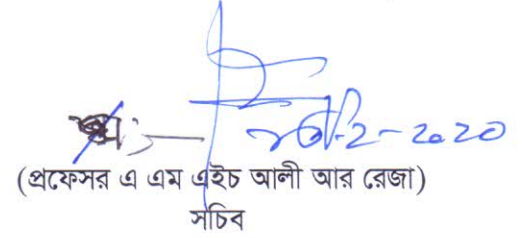 (প্রফেসর এ এম এইচ আলী আর রেজা)
সচিব